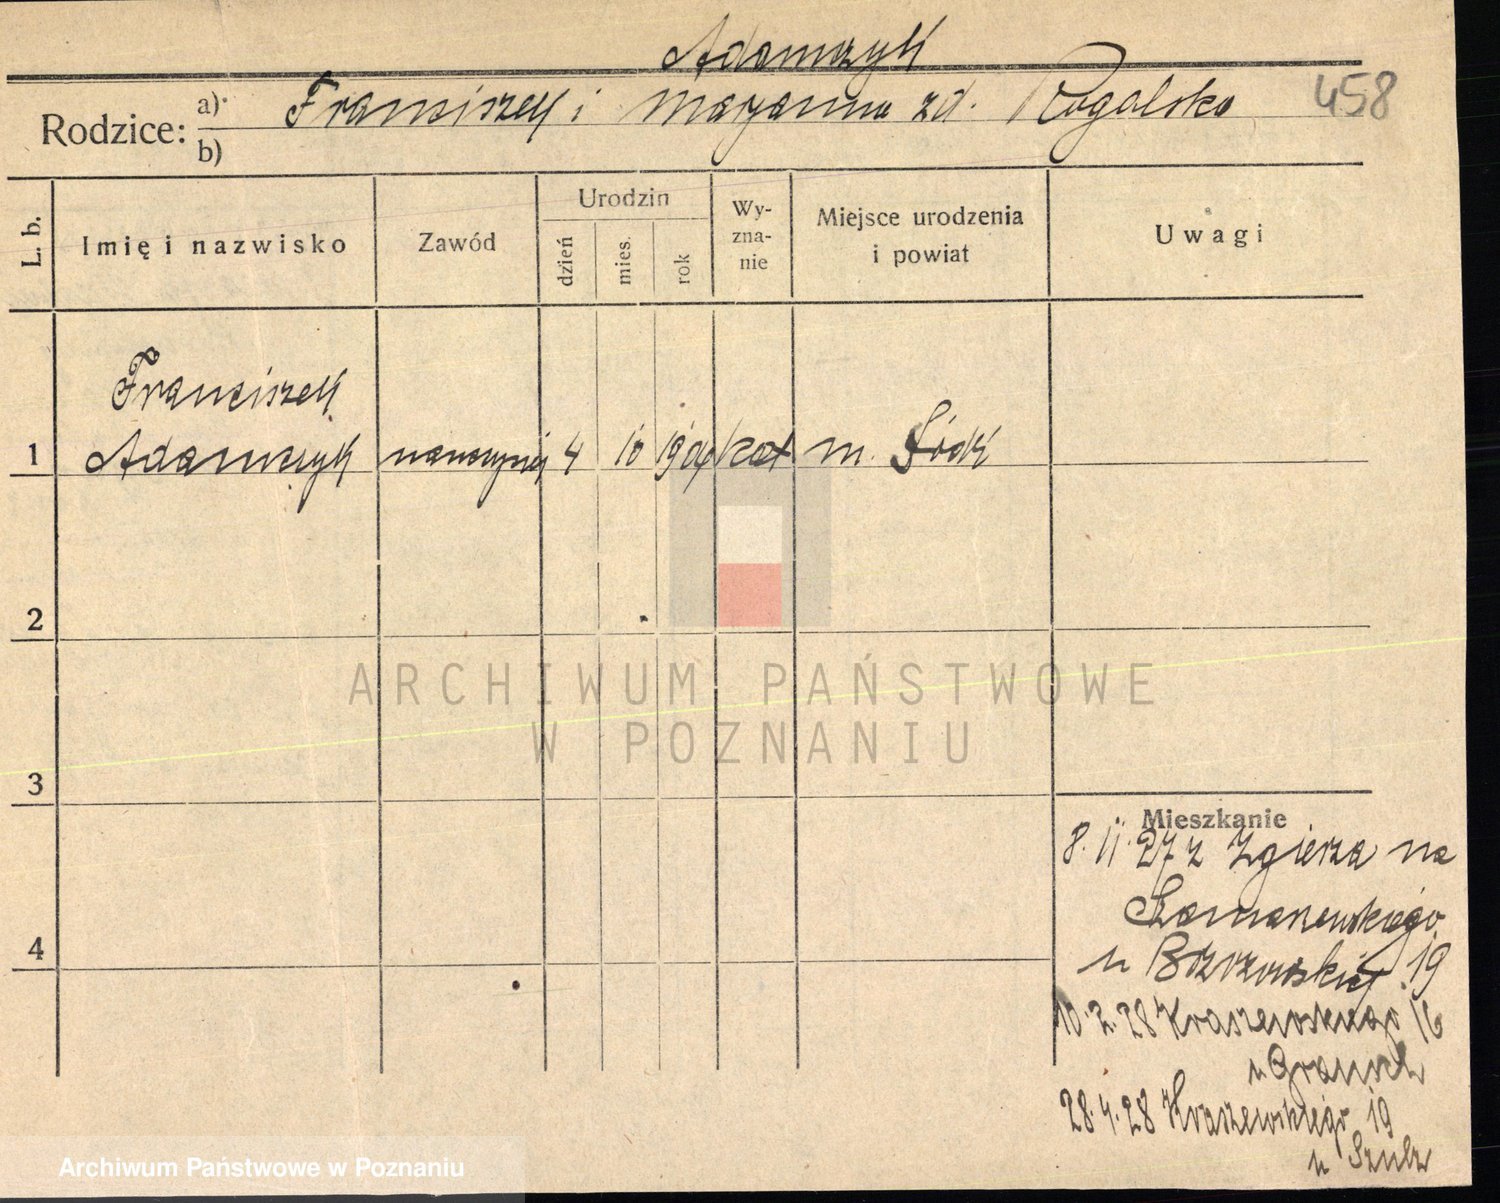 Adamczyk
Rodzice: a) Franciszek i Maryanna zd. Rogalska 458
b)
L. b. Imię i nazwisko Zawód Urodzin dzień mies. rok Wyznanie Miejsce urodzenia i powiat Uwagi
Franciszek
1 Adamczyk nauczyciel 4 10 1904 kat m. Łódź
2
3
4
Mieszkanie
8. 11. 27 z Zgierza na
Szamarzewskiego
u Brzozowskiej 19
10. 2. 28 Kraszewskiego 16
u
28. 4. 28 Kraszewskiego 19
u Szulz
ARCHIWUM PAŃSTWOWE
W POZNANIU
Archiwum Państwowe w Poznaniu